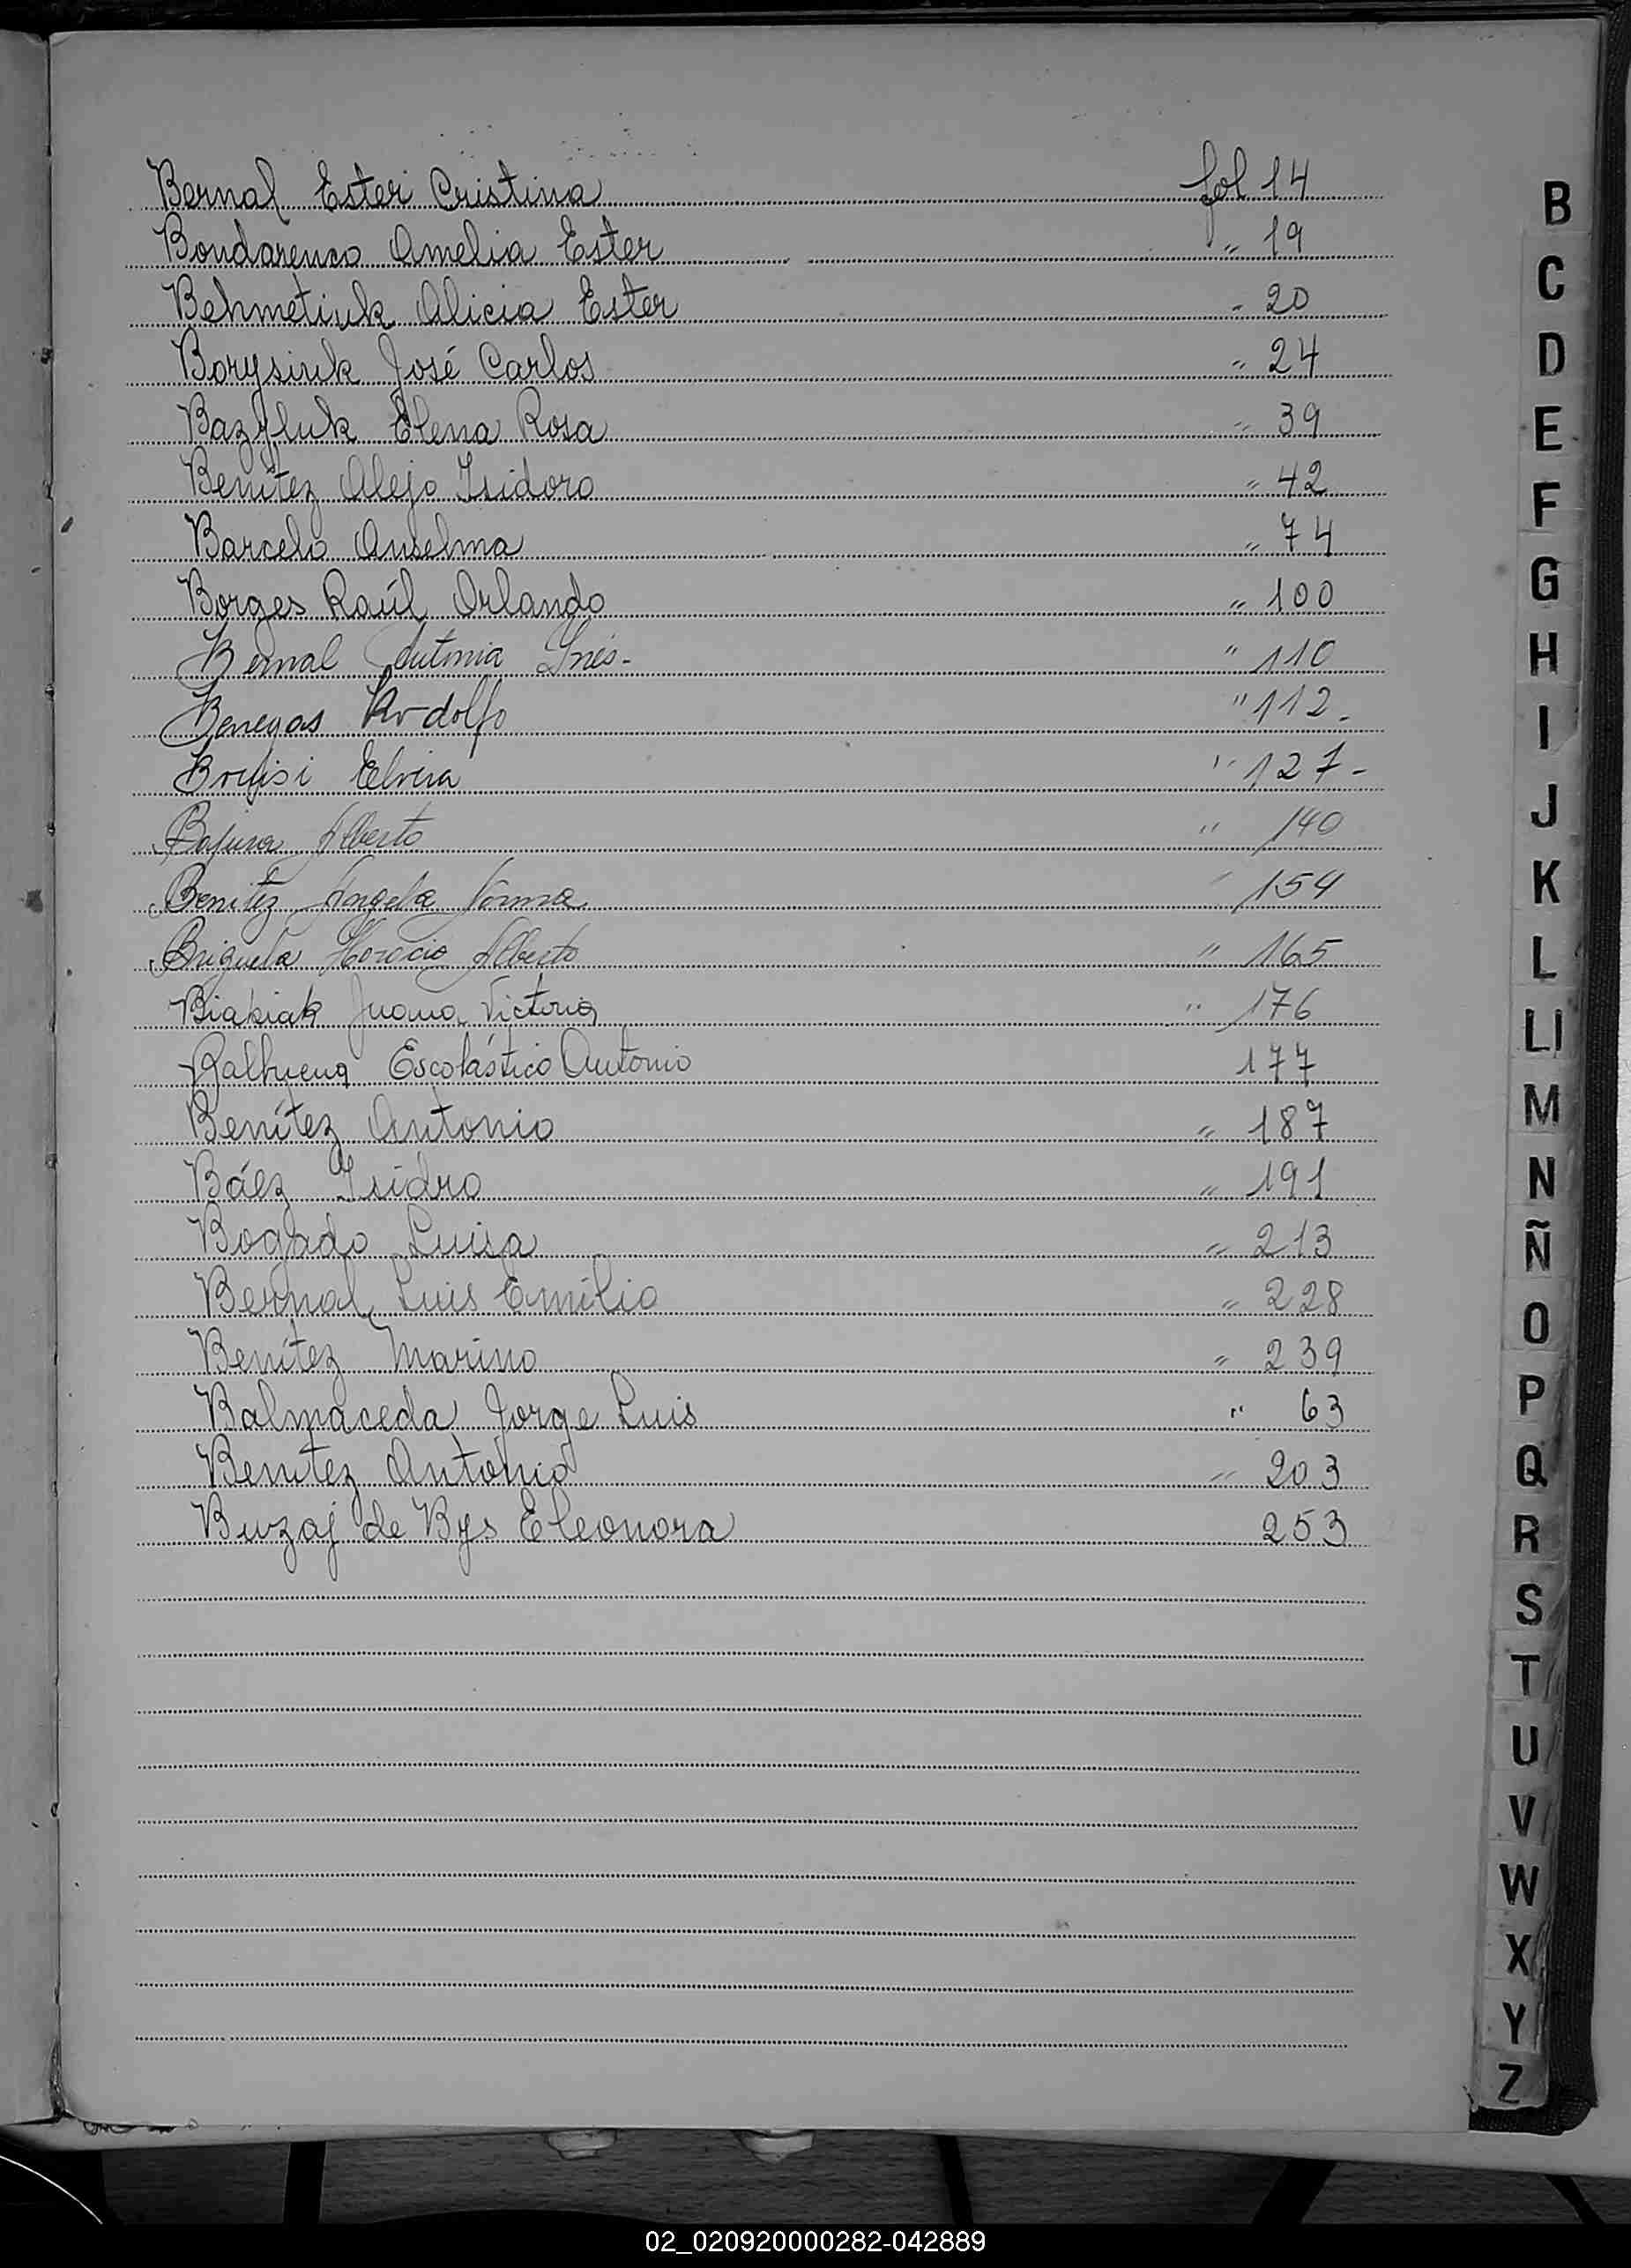 Bernal Ester Cristina fol 14
Bondarenco Amelia Ester " 19
Behmetiuk Alicia Ester " 20
Borysiuk José Carlos " 24
Bazyluk Elena Rosa " 39
Benítez Alejo Isidoro " 42
Barcelo Anselma " 74
Borges Raúl Orlando " 100
Bernal Antonia Inés- " 110
Benegas Rodolfo " 112-
Elvira " 127-
Alberto " 140
Benitez Angela Norma " 154
Horacio Alberto " 165
Biakiak Juana Victoria " 176
Balbuena Escolástico Antonio 177
Benítez Antonio " 187
Báez Isidro " 191
Bogado Luisa " 213
Bernal Luis Emilio " 228
Benítez Marino " 239
Balmaceda Jorge Luis " 63
Benitez Antonio " 203
Buzaj de Bys Eleonora 253
B
C
D
E
F
G
H
I
J
K
L
Ll
M
N
Ñ
O
P
Q
R
S
T
U
V
W
X
Y
Z
02_020920000282-042889